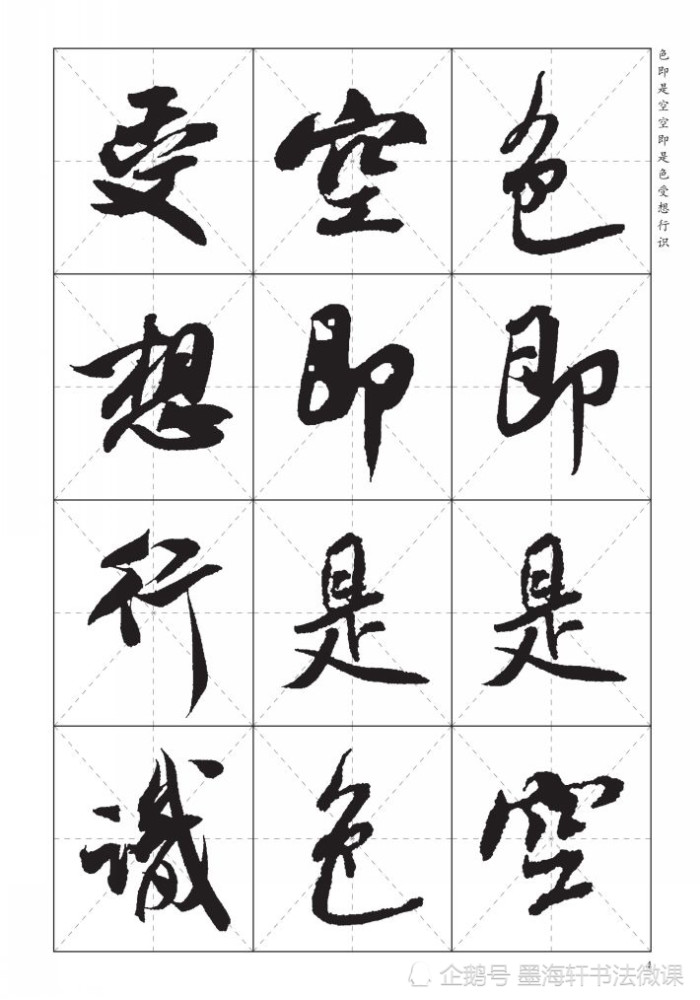 色即是空
空即是色
受想行識
色即是空空即是色受想行识
4
企鹅号 墨海轩书法微课